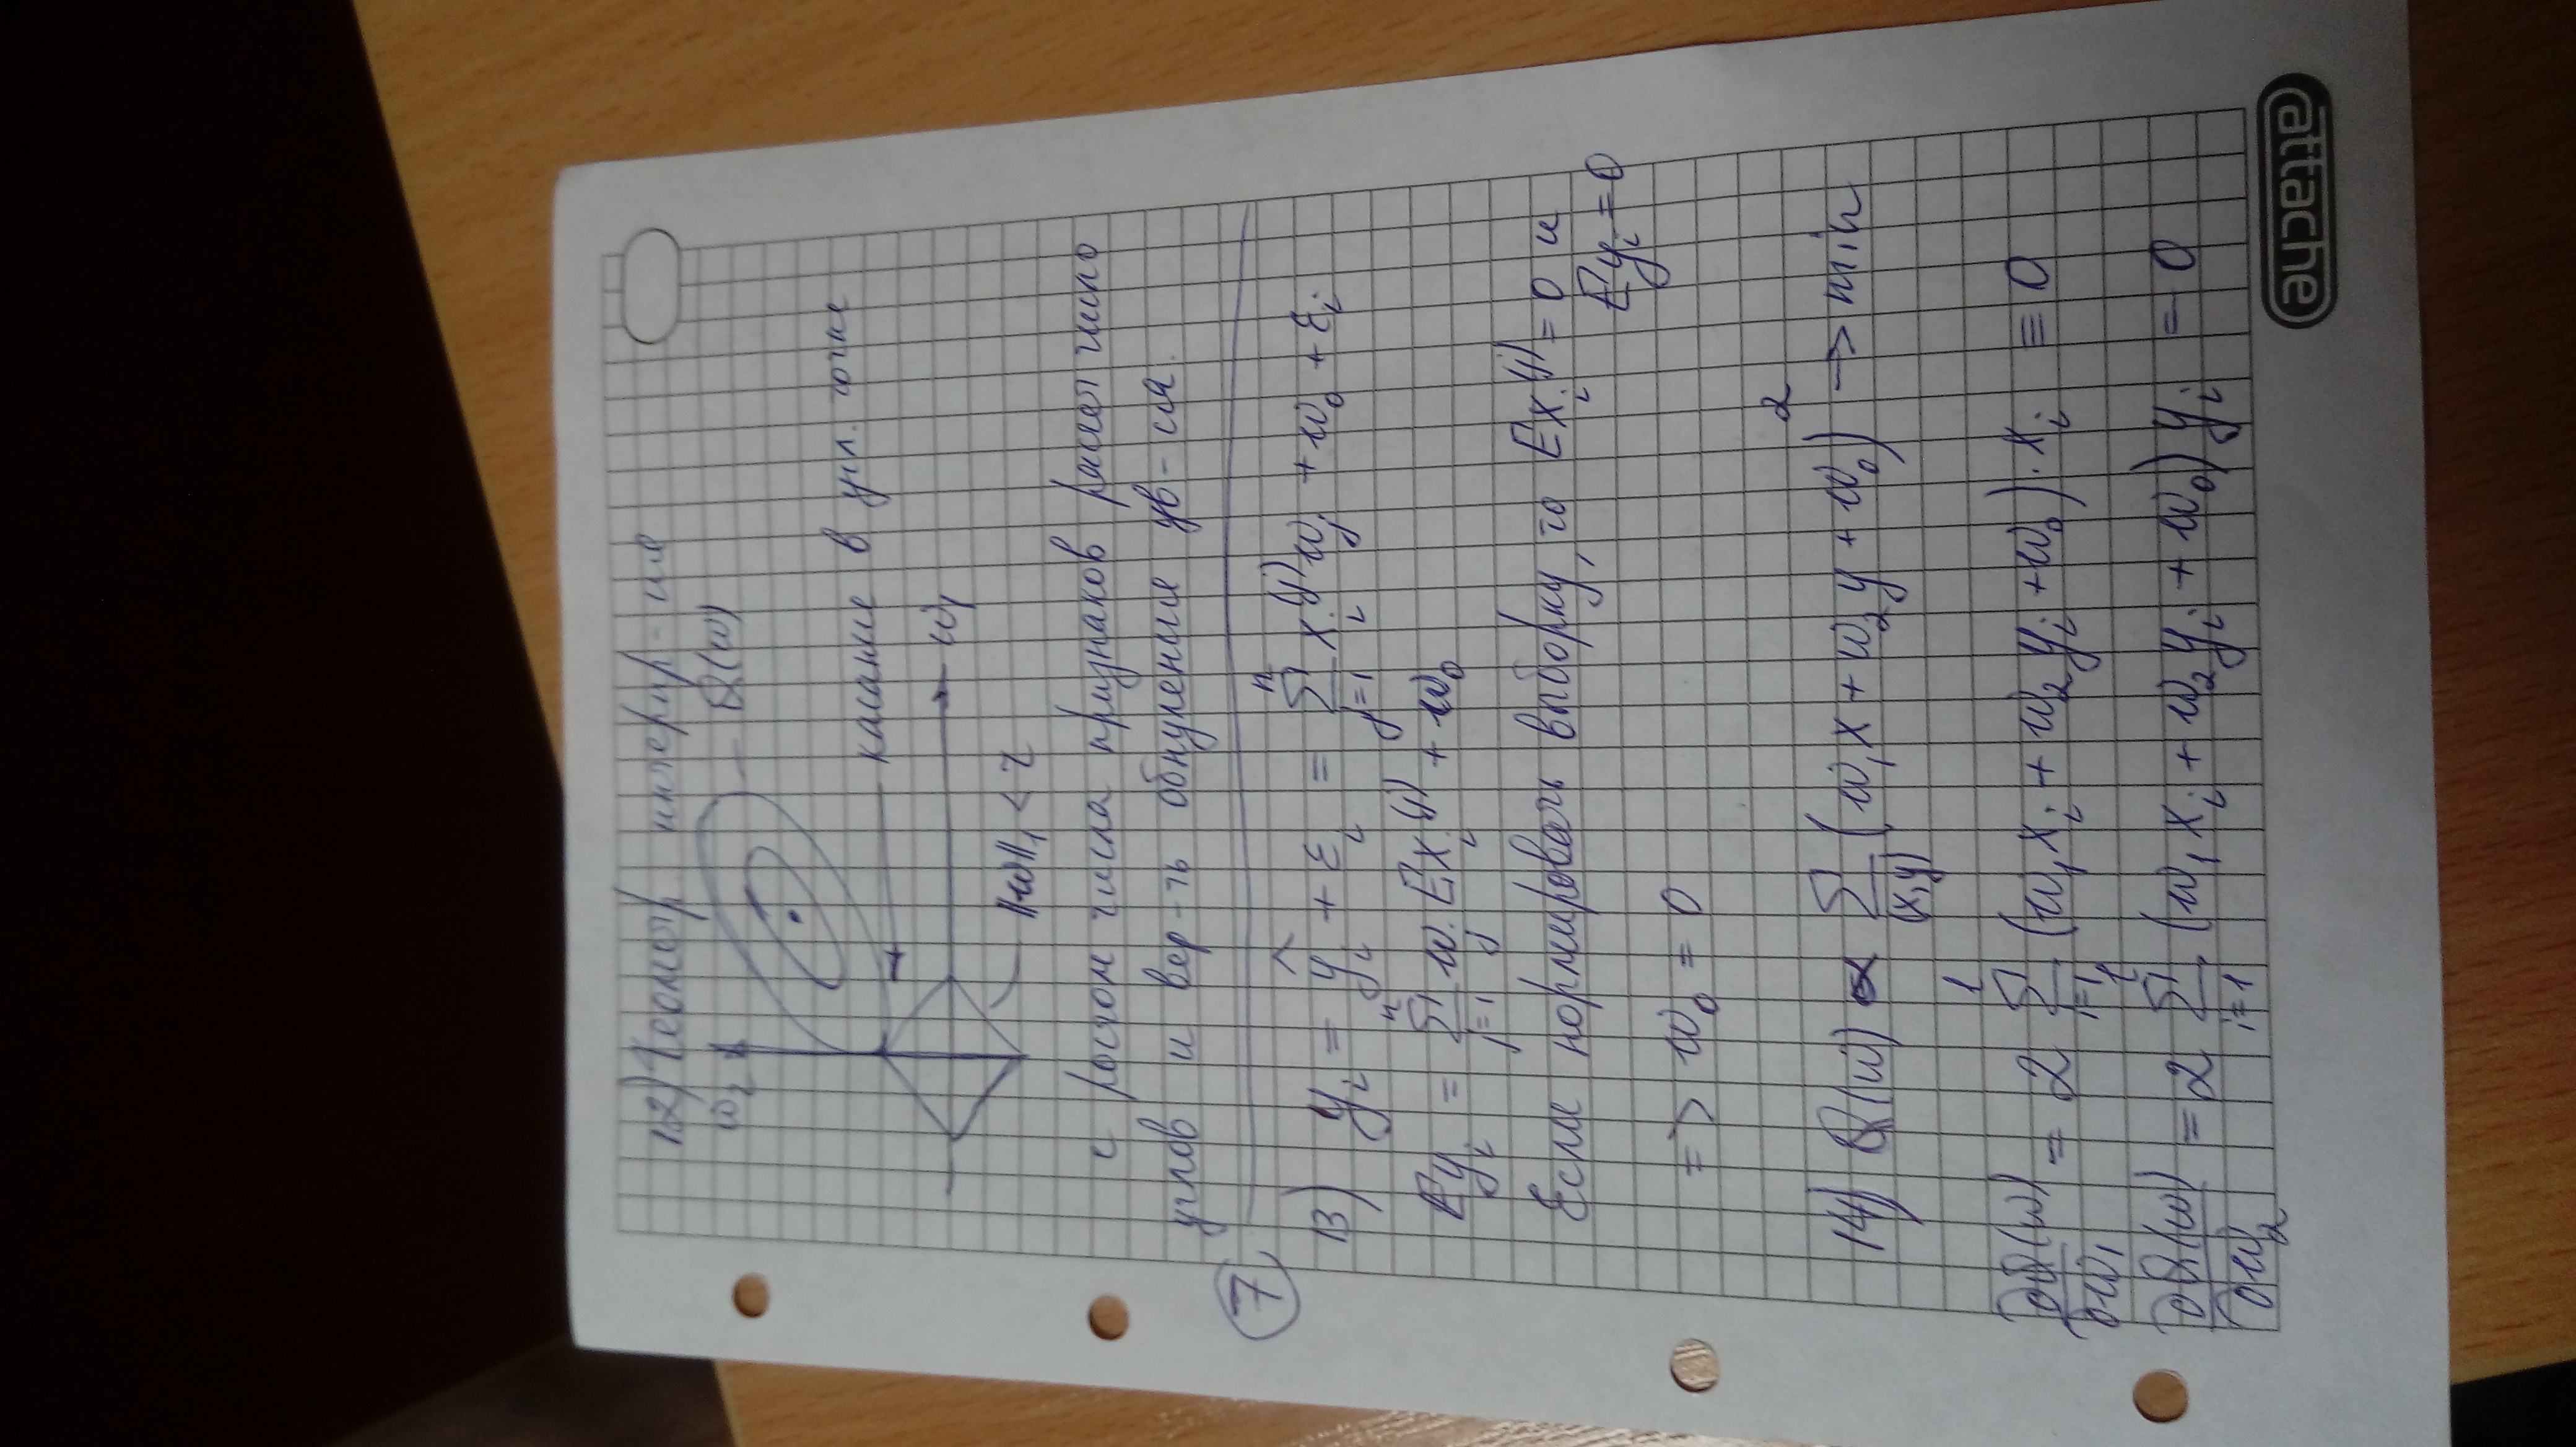 12) Геометр. интерпр-ия
w₂
Q(w)
касание в угл. точке
w₁
||w||₁ < τ
с ростом числа признаков растет число
углов и вер-ть обнуления ув-ия.
7
13) yᵢ = ŷᵢ + εᵢ = ∑ⁿⱼ₌₁ xᵢ⁽ʲ⁾ wⱼ + w₀ + εᵢ
Eyᵢ = ∑ⁿⱼ₌₁ wⱼ Exᵢ⁽ʲ⁾ + w₀
Если нормировать выборку, то Exᵢ⁽ʲ⁾ = 0 и
Eyᵢ = 0
=> w₀ = 0
14) Q(w) ∝ ∑₍ₓ,ᵧ₎ (w₁x + w₂y + w₀)² → min
∂Q(w)/∂w₁ = 2 ∑ˡᵢ₌₁ (w₁xᵢ + w₂yᵢ + w₀)·xᵢ = 0
∂Q(w)/∂w₂ = 2 ∑ˡᵢ₌₁ (w₁xᵢ + w₂yᵢ + w₀)yᵢ = 0
attache